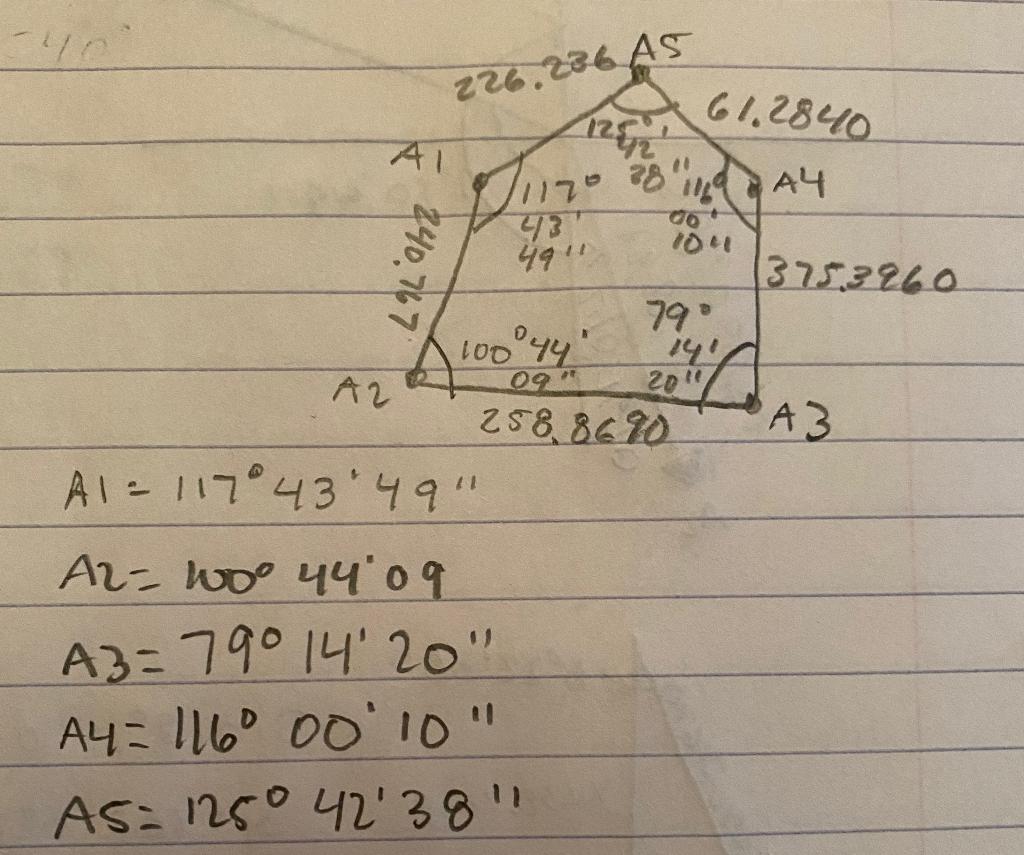 A5
226.236
61.2840
125° 42' 38"
A1
117° 43' 49"
116° 00' 10"
A4
240.767
375.3960
79° 14' 20"
100° 44' 09"
A2
258.8690
A3
A1 = 117° 43' 49"
A2 = 100° 44' 09
A3 = 79° 14' 20"
A4 = 116° 00' 10"
A5 = 125° 42' 38"